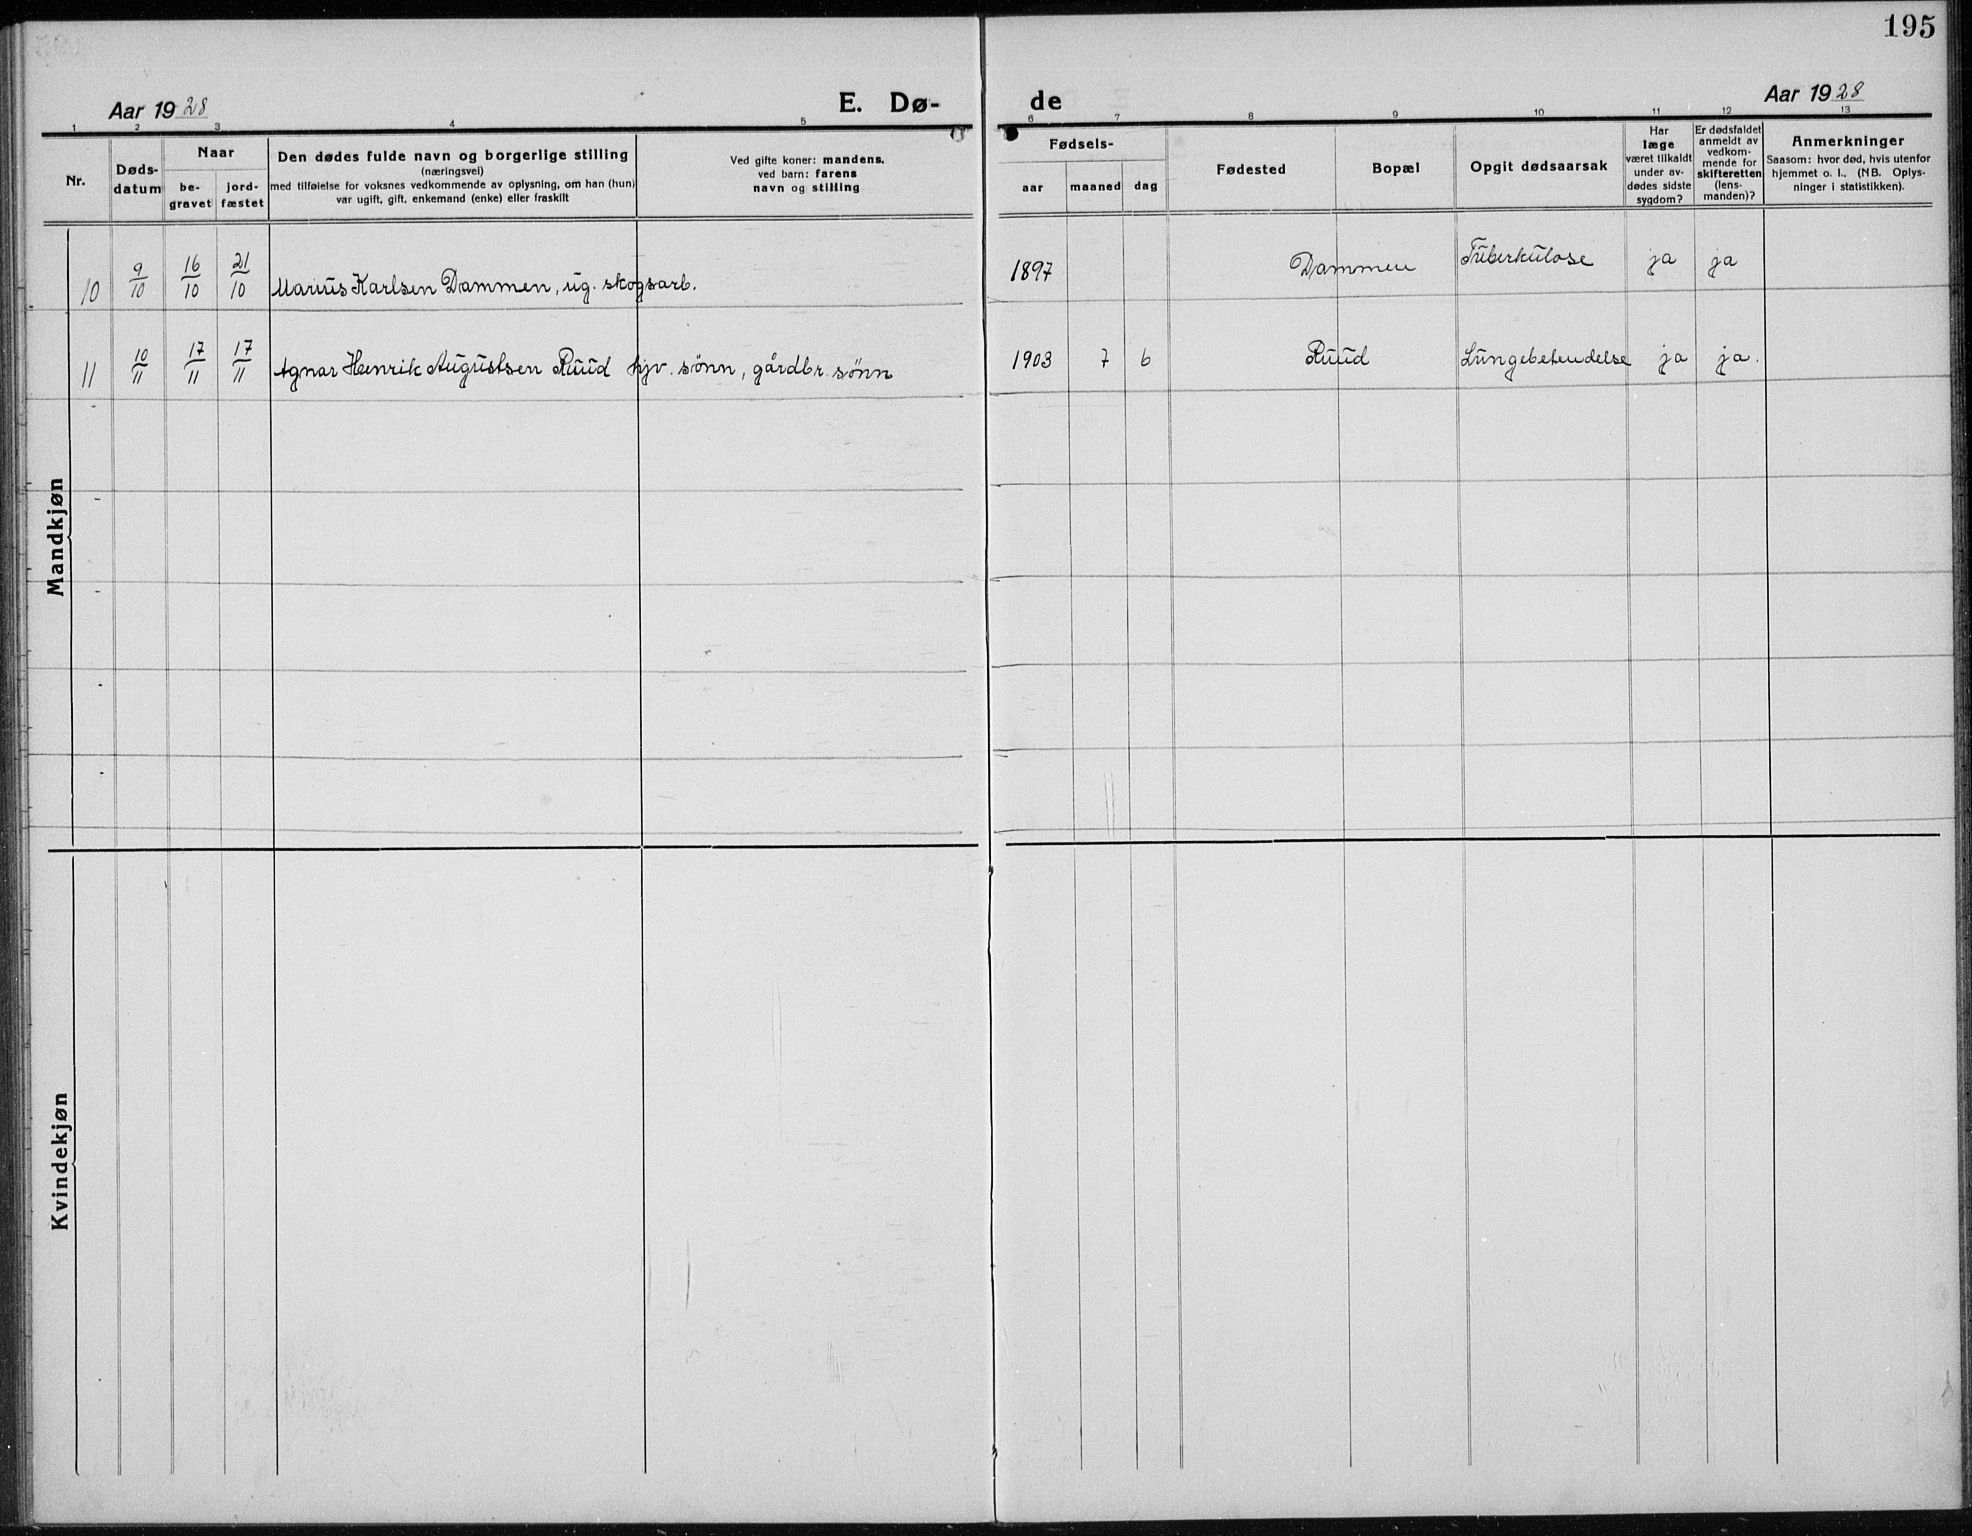 195
Aar 1928
E. Dø-
de
Aar 1928
1 2 3 4 5 6 7 8 9 10 11 12 13
Nr.
Døds-
datum
Naar
be-
gravet
jord-
fæstet
Den dødes fulde navn og borgerlige stilling
(næringsvei)
med tilføielse for voksnes vedkommende av oplysning, om han (hun)
var ugift, gift, enkemand (enke) eller fraskilt
Ved gifte koner: mandens.
ved barn: farens
navn og stilling
Fødsels-
aar
maaned
dag
Fødested
Bopæl
Opgit dødsaarsak
Har
læge
været tilkaldt
under av-
dødes sidste
sygdom?
Er dødsfaldet
anmeldt av
vedkom-
mende for
skifteretten
(lens-
manden)?
Anmerkninger
Saasom: hvor død, hvis utenfor
hjemmet o. l., (NB. Oplys-
ninger i statistikken).
Mandkjøn
10 9/10 16/10 21/10 Marius Karlsen Dammen, ug. skogsarb. 1897 Dammen Tuberkulose ja ja
11 10/11 17/11 17/11 Agnar Henrik Augustsen Ruud hjv. sönn, gårdbr. sönn 1903 7 6 Ruud Lungebetendelse ja ja.
Kvindekjøn